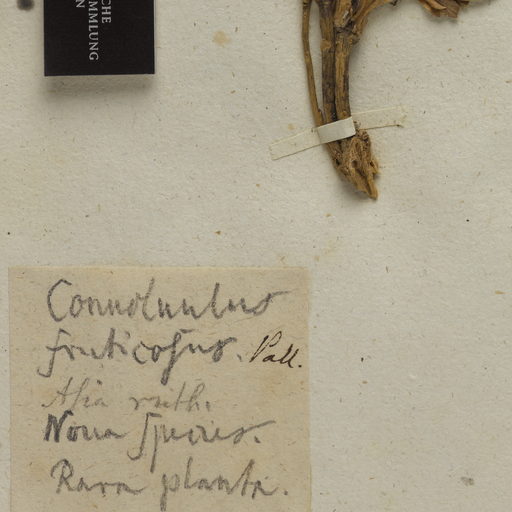 CHE
MMLUNG
N
Convolvulus
fruticosus. Pall.
Asia ruth.
Nova species.
Rara planta.